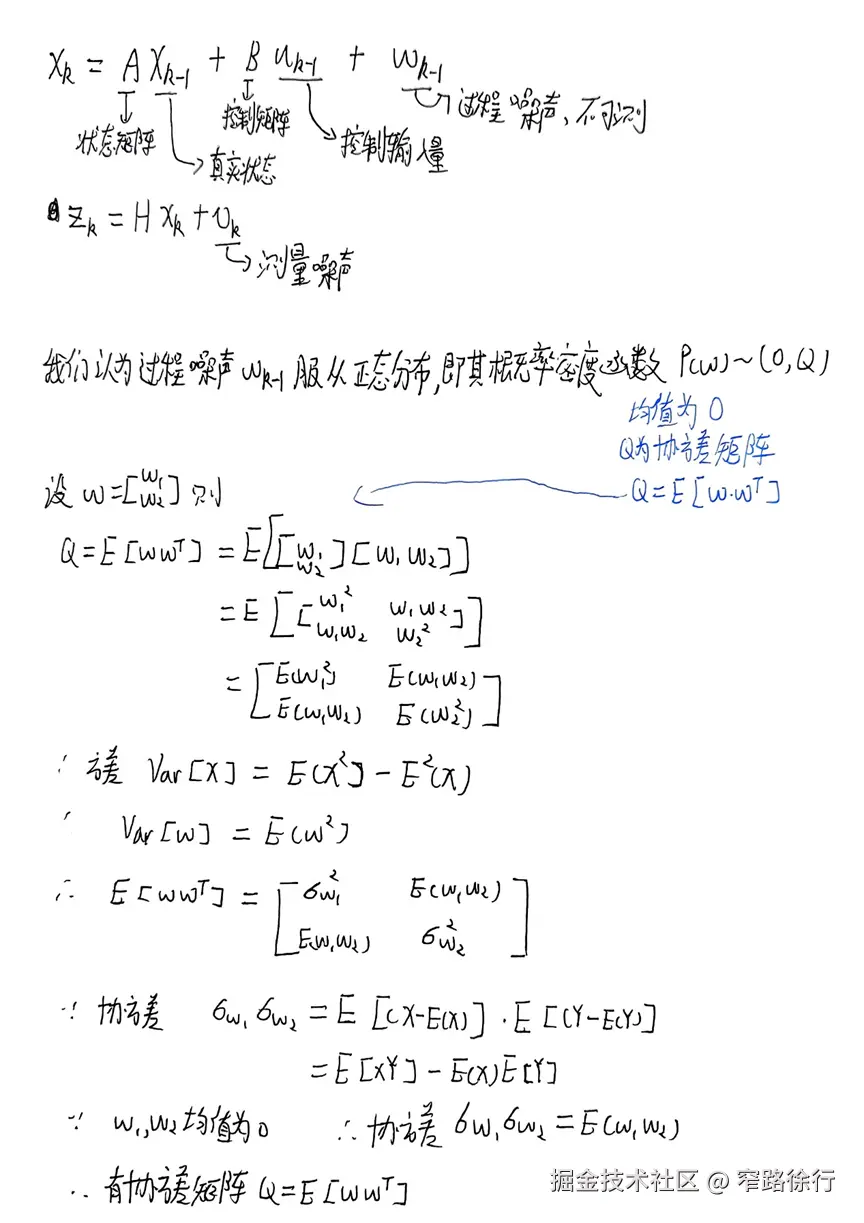 x_k = A x_{k-1} + B u_{k-1} + w_{k-1}
过程噪声、不可测
控制矩阵
状态矩阵
控制输入量
真实状态
z_k = H x_k + v_k
测量噪声
我们认为过程噪声 w_{k-1} 服从正态分布,即其概率密度函数 P(w) ~ (0, Q)
均值为 0
Q为协方差矩阵
Q = E[w·w^T]
设 w = [w_1 w_2] 则
Q = E[ww^T] = E[[w_1 w_2][w_1 w_2]]
= E[[w_1^2 w_1w_2
w_1w_2 w_2^2]]
= [E(w_1^2) E(w_1w_2)
E(w_1w_2) E(w_2^2)]
∵ 方差 Var[X] = E(X^2] - E^2(X)
∴ Var[w] = E(w^2)
∴ E[ww^T] = [σ_{w_1}^2 E(w_1w_2)
E(w_1w_2) σ_{w_2}^2]
∵ 协方差 σ_{w_1} σ_{w_2} = E[(X-E(X)]·E[(Y-E(Y)]
= E[XY] - E(X)E[Y]
∵ w_1,w_2均值为0 ∴ 协方差 σ_{w_1}σ_{w_2} = E(w_1w_2)
∴ 有协方差矩阵 Q = E[ww^T]
掘金技术社区 @ 窄路徐行